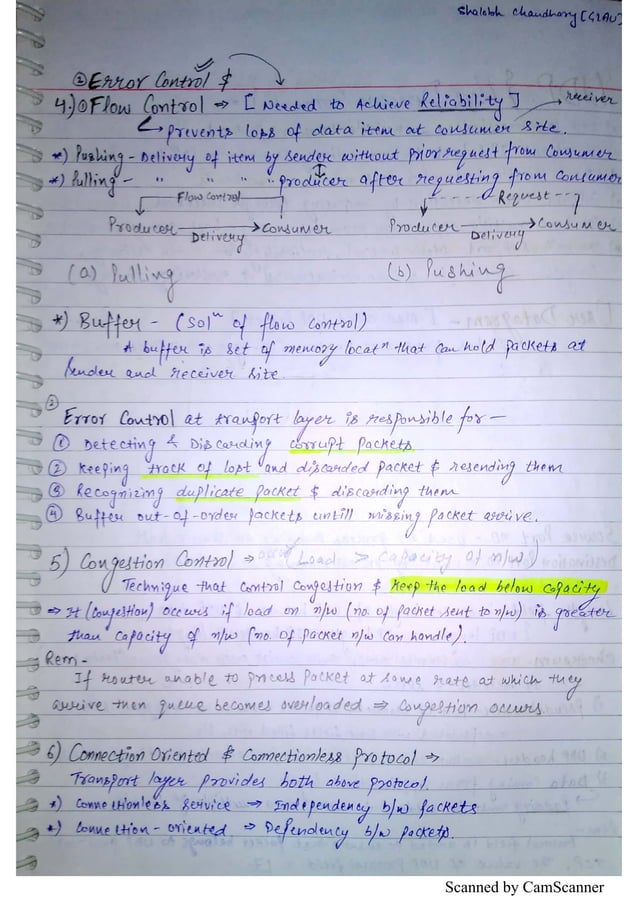 Shalabh Chaudhary [GLAU]
② Error Control &
4.) ① Flow Control ⇒ [ Needed to Achieve Reliability ]
receiver
↳ prevents loss of data item at consumer site.
*) Pushing - Delivery of item by sender without prior request from Consumer
*) Pulling - " " " " producer after requesting from consumer
Flow Control
Request
Producer → Consumer
Producer → Consumer
Delivery
Delivery
(a) Pulling
(b) Pushing
*) Buffer - (Solⁿ of flow control)
A buffer is set of memory locatⁿ that can hold packets at
sender and receiver site.
②
Error Control at transport layer is responsible for —
① Detecting & Discarding corrupt Packets
② Keeping track of lost and discarded packet & resending them
③ Recognizing duplicate packet & discarding them
④ Buffer out-of-order packets untill missing packet arrive.
5) Congestion Control ⇒ (Load > Capacity of n/w)
Technique that control congestion & keep the load below capacity
⇒ It (congestion) occurs if load on n/w (no. of packet sent to n/w) is greater
than capacity of n/w (no. of packet n/w can handle).
Rem -
If router unable to process packet at same rate at which they
arrive then queue becomes overloaded ⇒ Congestion occurs
6) Connection Oriented & Connectionless Protocol →
Transport layer provides both above protocol.
*) Connectionless service ⇒ Independency b/w packets
*) Connection - oriented ⇒ Dependency b/w packets.
Scanned by CamScanner